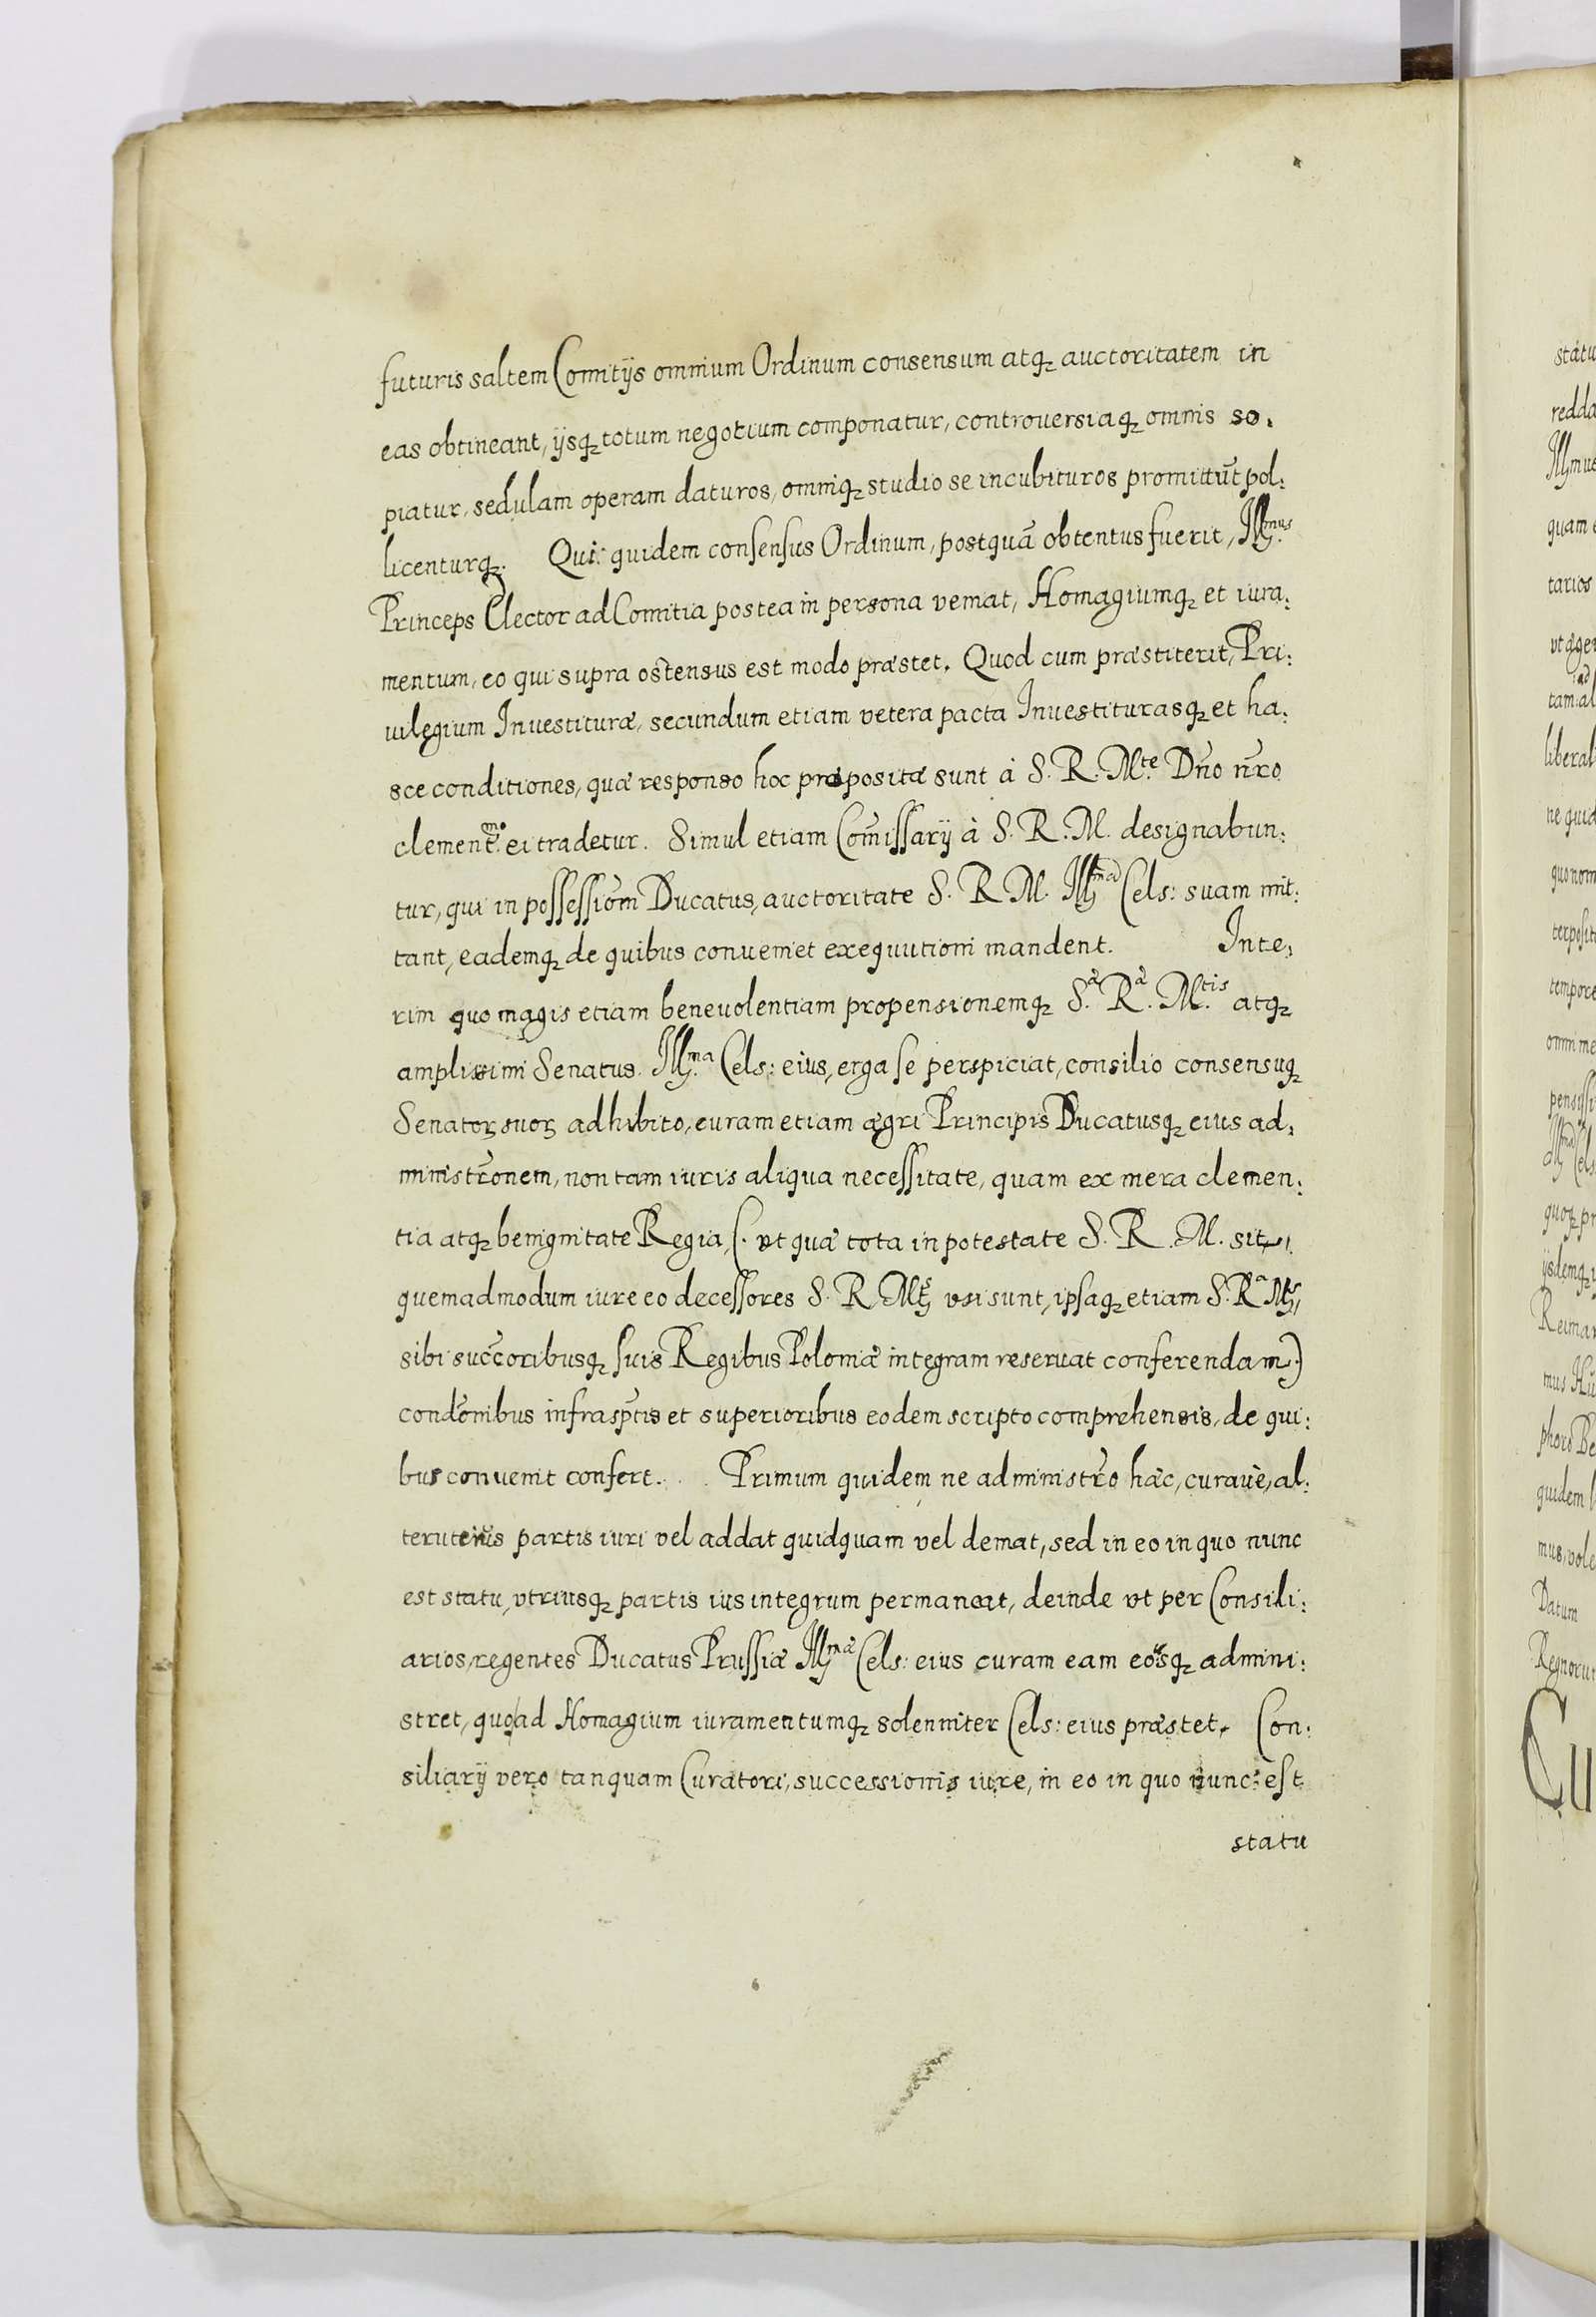 futuris saltem Comitijs omnium Ordinum consensum atq; auctoritatem in
eas obtineant, ijsq; totum negotium componatur, controuersiaq; omnis so:
piatur, sedulam operam daturos, omniq; studio se incubituros promittūt pol:
licenturq;. Qui quidem consensus Ordinum, postquā obtentus fuerit, Illmus
Princeps Elector ad Comitia postea in persona veniat, Homagiumq; et iura:
mentum, eo qui supra ostensus est modo præstet. Quod cum præstiterit, Pri:
uilegium Inuestituræ, secundum etiam vetera pacta Inuestiturasq; et ha:
sce conditiones, quæ responso hoc præpositæ sunt à S. R. Mte Dño ñro
clement.mo ei tradetur. Simul etiam Com̃issarij à S. R. M. designabun:
tur, qui in possessiom̃ Ducatus, auctoritate S. R. M. Illma Cels: suam mit:
tant, eademq; de quibus conueniet exequutioni mandent. Inte:
rim quo magis etiam beneuolentiam propensionemq; S.æ R.æ M.tis atq;
amplissimi Senatus Ill.ma Cels: eius, erga se perspiciat, consilio consensuq;
Senatoꝝ suoꝝ adhibito, curam etiam ægri Principis Ducatusq; eius ad:
ministr̃onem, non tam iuris aliqua necessitate, quam ex mera clemen:
tia atq; benignitate Regia, (. vt quæ tota in potestate S. R. M. sit,
quemadmodum iure eo decessores S. R. Mtis vsi sunt, ipsaq; etiam S. Ra Mtas
sibi succ̃oribusq; suis Regibus Poloniæ integram reseruat conferendam.)
cond̃onibus infrasp̃tis et superioribus eodem scripto comprehensis, de qui:
bus conuenit confert. Primum quidem ne administr̃o hæc, curaue, al:
terutrius partis iuri vel addat quidquam vel demat, sed in eo in quo nunc
est statu, vtriusq; partis ius integrum permaneat, deinde vt per Consili:
arios, regentes Ducatus Prussiæ Illmæ Cels: eius curam eam eousq; admini:
stret, quoad Homagium iuramentumq; solenniter Cels: eius præstet. Con:
siliarij vero tanquam Curatori, successionis iure, in eo in quo nunc est
statu